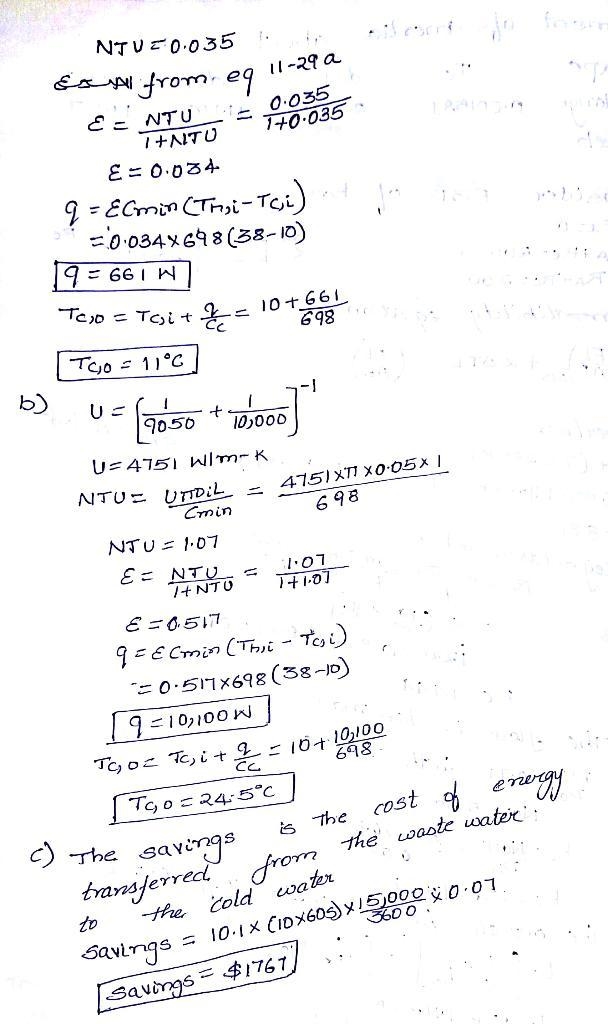 NTU = 0.035
from eq 11-29a
ε = NTU / 1+NTU = 0.035 / 1+0.035
ε = 0.034
q = ε Cmin (Th,i - Tc,i)
= 0.034 x 698 (38-10)
q = 661 W
Tc,o = Tc,i + q/Cc = 10 + 661/698
Tc,o = 11°C
b) U = [1/9050 + 1/10,000]^-1
U = 4751 W/m-K
NTU = UπDiL / Cmin = 4751 x π x 0.05 x 1 / 698
NTU = 1.07
ε = NTU / 1+NTU = 1.07 / 1+1.07
ε = 0.517
q = ε Cmin (Th,i - Tc,i)
= 0.517 x 698 (38-10)
q = 10,100 W
Tc,o = Tc,i + q/Cc = 10 + 10,100/698
Tc,o = 24.5°C
c) The savings is the cost of energy
transferred from the waste water
to the cold water
Savings = 10.1 x (10x60s) x 15,000/3600 x 0.07
Savings = $1767